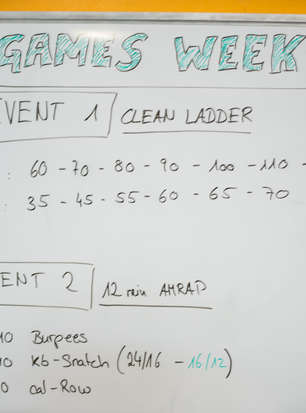 GAMES WEEK
EVENT 1 CLEAN LADDER
: 60 - 70 - 80 - 90 - 100 - 110 -
: 35 - 45 - 55 - 60 - 65 - 70
ENT 2 12 min AMRAP
10 Burpees
10 Kb-Snatch (24/16 - 16/12)
0 Cal-Row